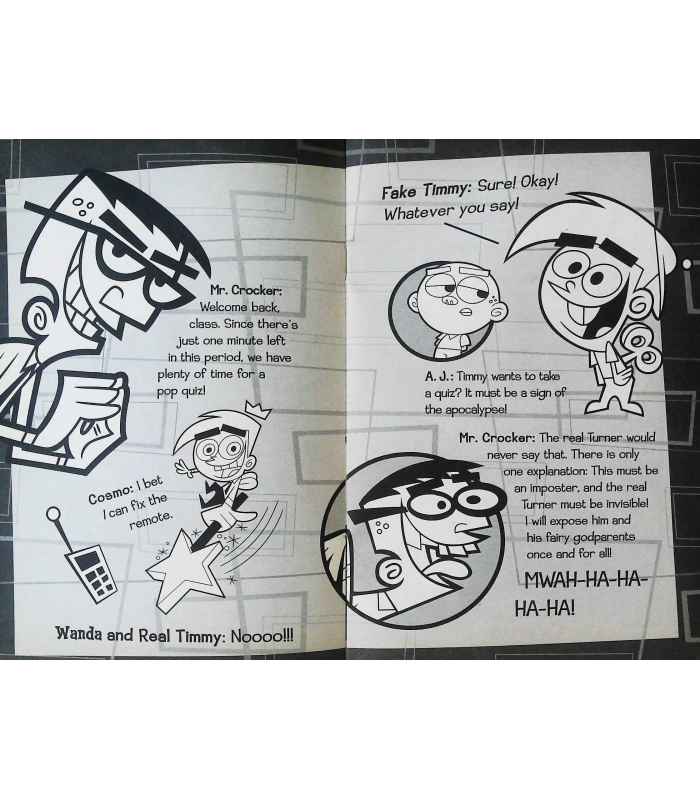 Mr. Crocker:
Welcome back,
class. Since there's
just one minute left
in this period, we have
plenty of time for a
pop quiz!
Cosmo: I bet
I can fix the
remote.
Wanda and Real Timmy: Noooo!!!
Fake Timmy: Sure! Okay!
Whatever you say!
A. J.: Timmy wants to take
a quiz? It must be a sign of
the apocalypse!
Mr. Crocker: The real Turner would
never say that. There is only
one explanation: This must be
an imposter, and the real
Turner must be invisible!
I will expose him and
his fairy godparents
once and for all!
MWAH-HA-HA-
HA-HA!